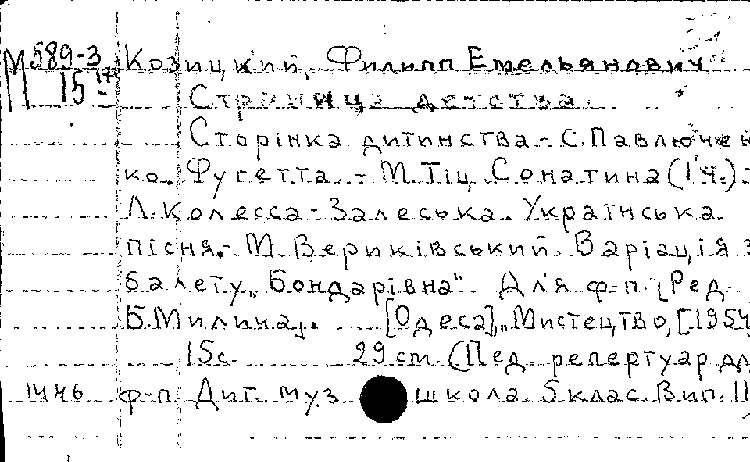 М 589-3 Козицкий, Филипп Емельянович
15 Страница детства.
Сторінка дитинства.- С. Павлючен
ко. Фугетта.- М. Тіц. Сонатина (1 ч.).-
Л. Колесса-Залеська. Українська
пісня.- М. Вериківський. Варіація з
балету „Бондарівна". Для ф-п. [Ред.
Б. Милича]. [Одеса], „Мистецтво, [1954
15с. 29 cm. (Пед. репертуар дл
1446 ф-п. Дит. муз. школа. 5 клас. Вип. II